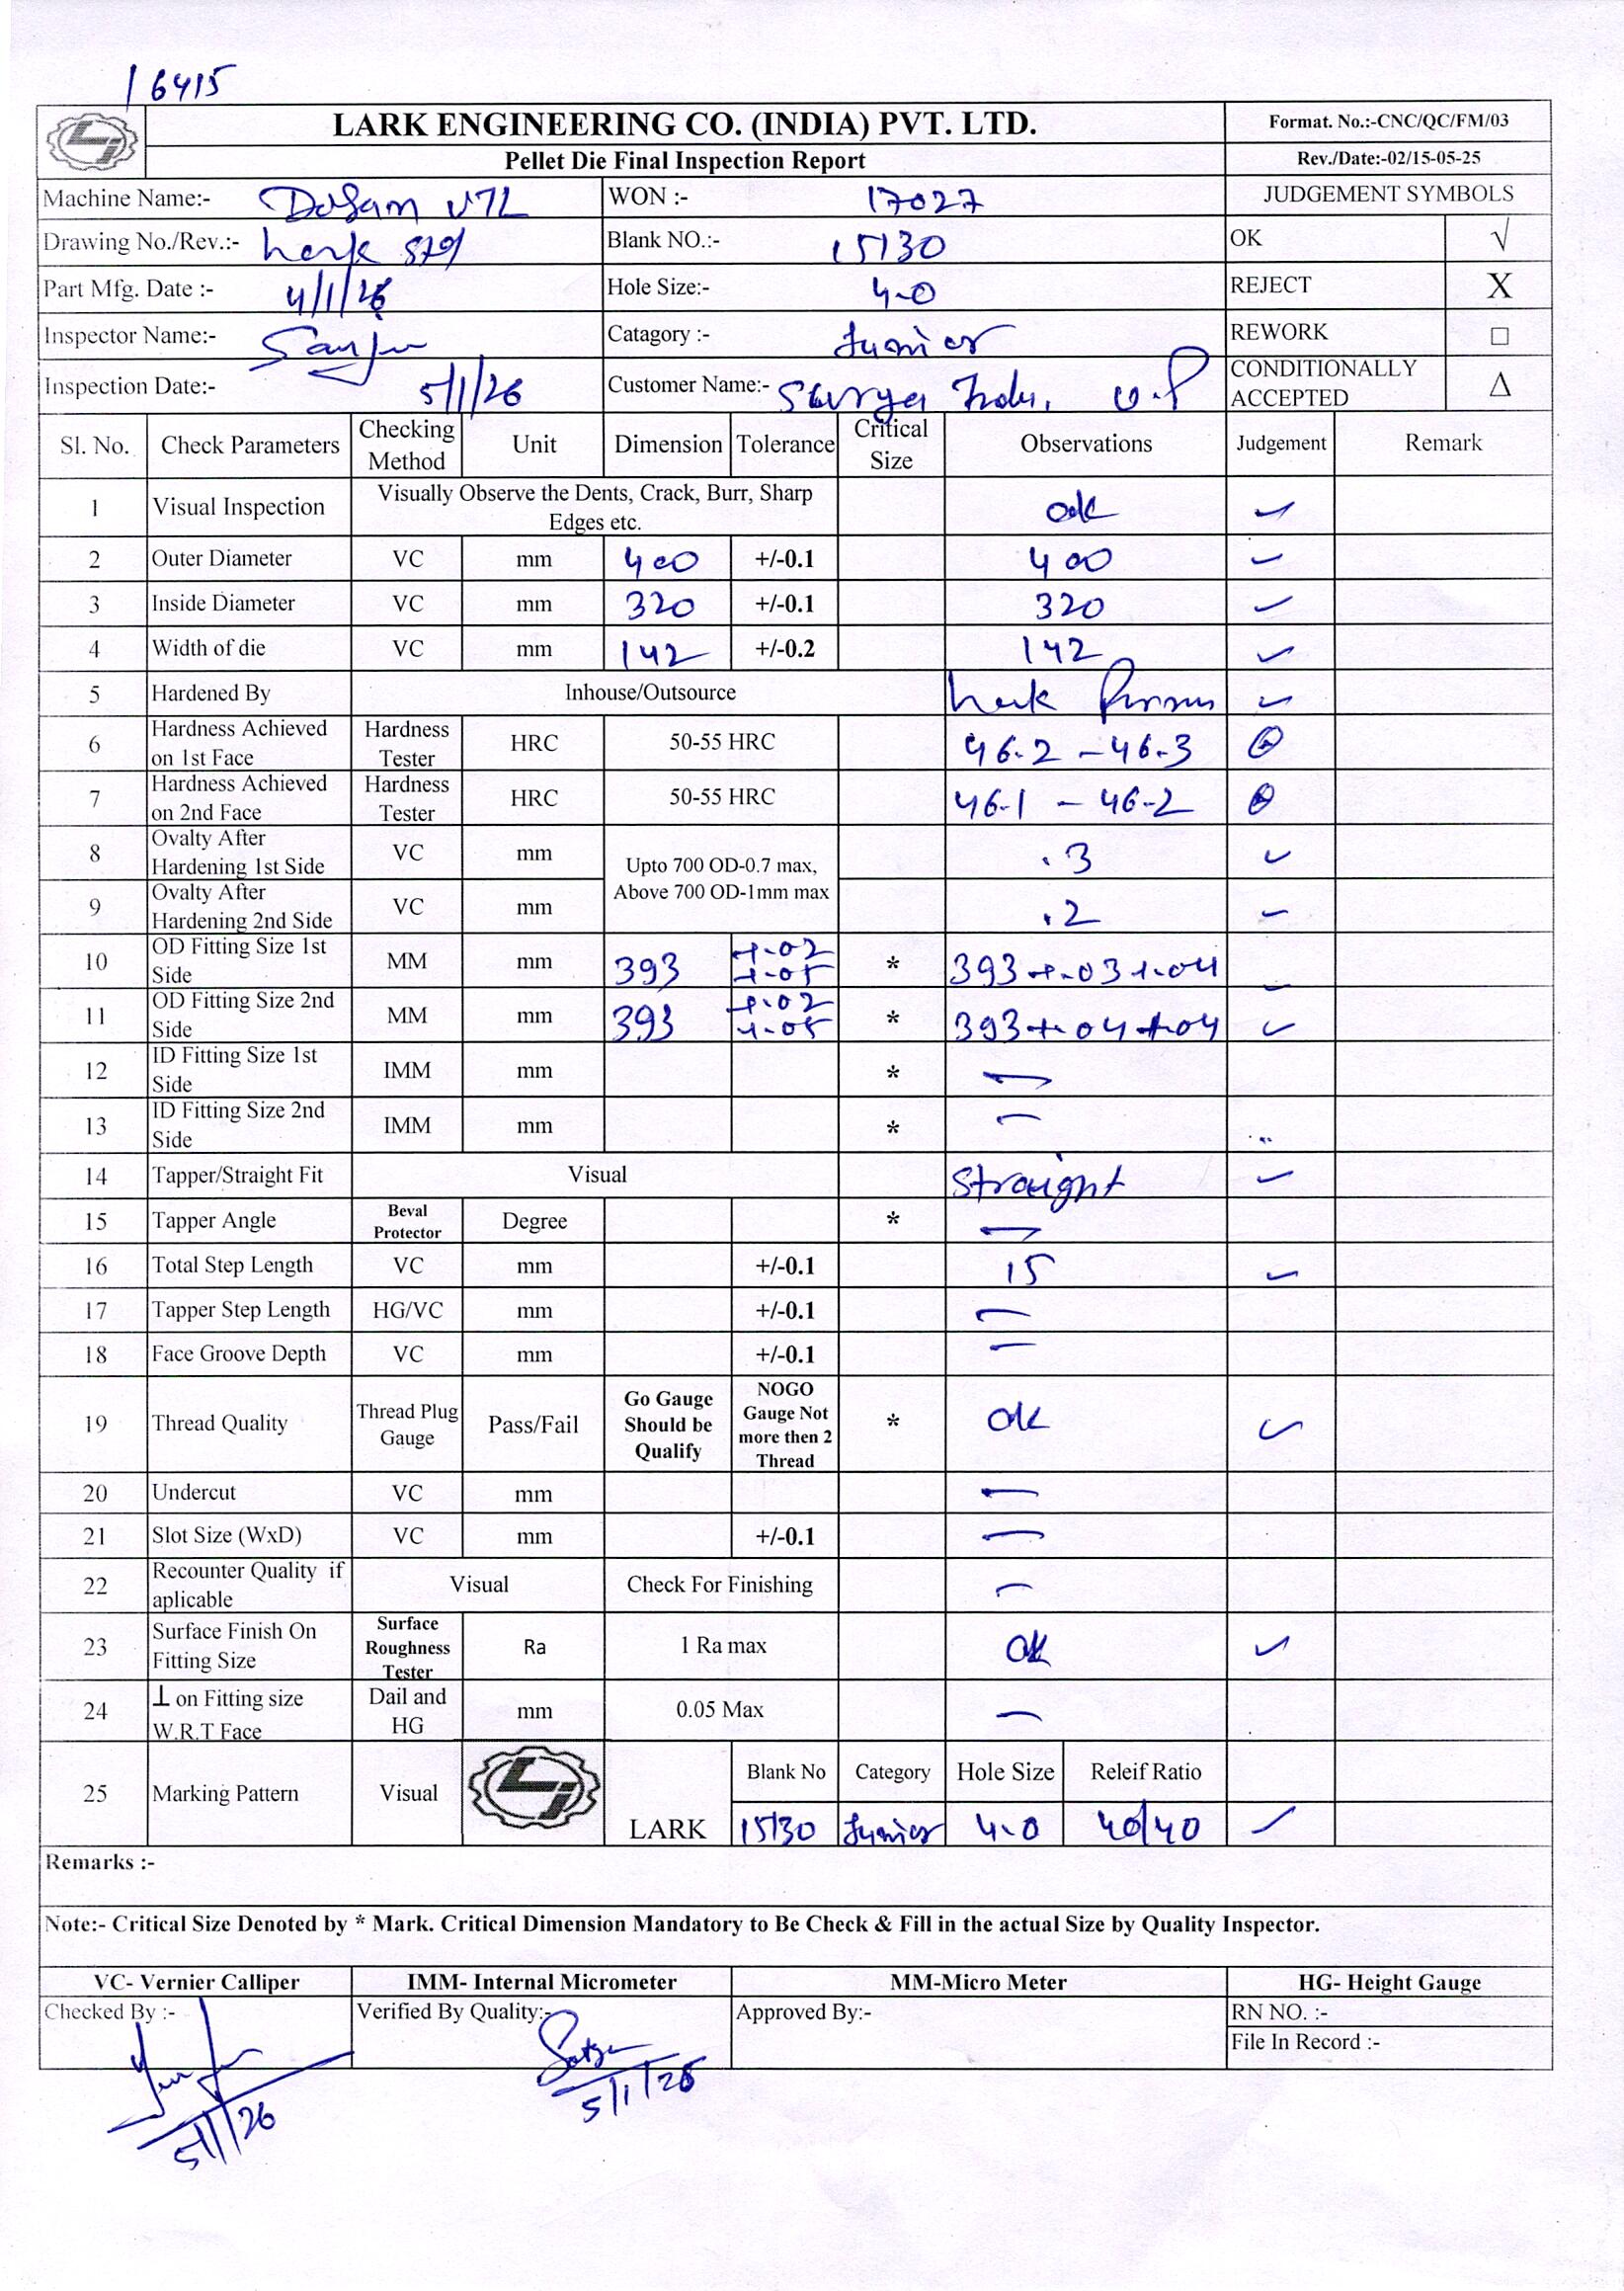 16415
LARK ENGINEERING CO. (INDIA) PVT. LTD.
Format. No.:-CNC/QC/FM/03
Pellet Die Final Inspection Report
Rev./Date:-02/15-05-25
Machine Name:- VTL WON :- 17027 JUDGEMENT SYMBOLS
Drawing No./Rev.:- Lark std Blank NO.:- 15130 OK √
Part Mfg. Date :- 4/1/26 Hole Size:- 4.0 REJECT X
Inspector Name:- Sanju Catagory :- Junior REWORK □
Inspection Date:- 5/1/26 Customer Name:- Surya Indu. U.P CONDITIONALLY ACCEPTED Δ
Sl. No. Check Parameters Checking Method Unit Dimension Tolerance Critical Size Observations Judgement Remark
1 Visual Inspection Visually Observe the Dents, Crack, Burr, Sharp Edges etc. ok ✓
2 Outer Diameter VC mm 400 +/-0.1 400 ✓
3 Inside Diameter VC mm 320 +/-0.1 320 ✓
4 Width of die VC mm 142 +/-0.2 142 ✓
5 Hardened By Inhouse/Outsource Lark ✓
6 Hardness Achieved on 1st Face Hardness Tester HRC 50-55 HRC 46.2 - 46.3
7 Hardness Achieved on 2nd Face Hardness Tester HRC 50-55 HRC 46.1 - 46.2
8 Ovalty After Hardening 1st Side VC mm Upto 700 OD-0.7 max, Above 700 OD-1mm max .3 ✓
9 Ovalty After Hardening 2nd Side VC mm .2 ✓
10 OD Fitting Size 1st Side MM mm 393 +.02 +.05 * 393 +.03 +.04 ✓
11 OD Fitting Size 2nd Side MM mm 393 +.02 +.05 * 393 +.04 +.04 ✓
12 ID Fitting Size 1st Side IMM mm * —
13 ID Fitting Size 2nd Side IMM mm * —
14 Tapper/Straight Fit Visual Straight ✓
15 Tapper Angle Beval Protector Degree * —
16 Total Step Length VC mm +/-0.1 15 ✓
17 Tapper Step Length HG/VC mm +/-0.1 —
18 Face Groove Depth VC mm +/-0.1 —
19 Thread Quality Thread Plug Gauge Pass/Fail Go Gauge Should be Qualify NOGO Gauge Not more then 2 Thread * ok ✓
20 Undercut VC mm —
21 Slot Size (WxD) VC mm +/-0.1 —
22 Recounter Quality if aplicable Visual Check For Finishing —
23 Surface Finish On Fitting Size Surface Roughness Tester Ra 1 Ra max ok ✓
24 ⊥ on Fitting size W.R.T Face Dail and HG mm 0.05 Max —
25 Marking Pattern Visual LARK Blank No Category Hole Size Releif Ratio
15130 Junior 4.0 40/40 ✓
Remarks :-
Note:- Critical Size Denoted by * Mark. Critical Dimension Mandatory to Be Check & Fill in the actual Size by Quality Inspector.
VC- Vernier Calliper IMM- Internal Micrometer MM-Micro Meter HG- Height Gauge
Checked By :- Verified By Quality:- Approved By:- RN NO. :-
File In Record :-
5/1/26 5/1/26